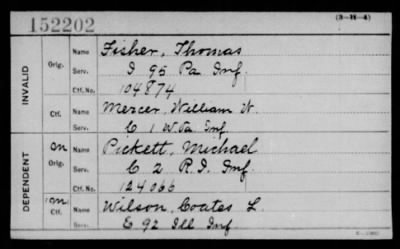 152202
(3-H-4)
INVALID
Orig.
Name Fisher, Thomas
Serv. I 95 Pa Inf
Ctf. No. 104874
Ctf.
Name Mercer, William W.
Serv. C 1 W Va Inf
DEPENDENT
Orig.
Name Pickett, Michael
Serv. C 2 R.I. Inf.
Ctf. No. 124066
Ctf.
Name Wilson, Coates L.
Serv. E 92 Ill Inf